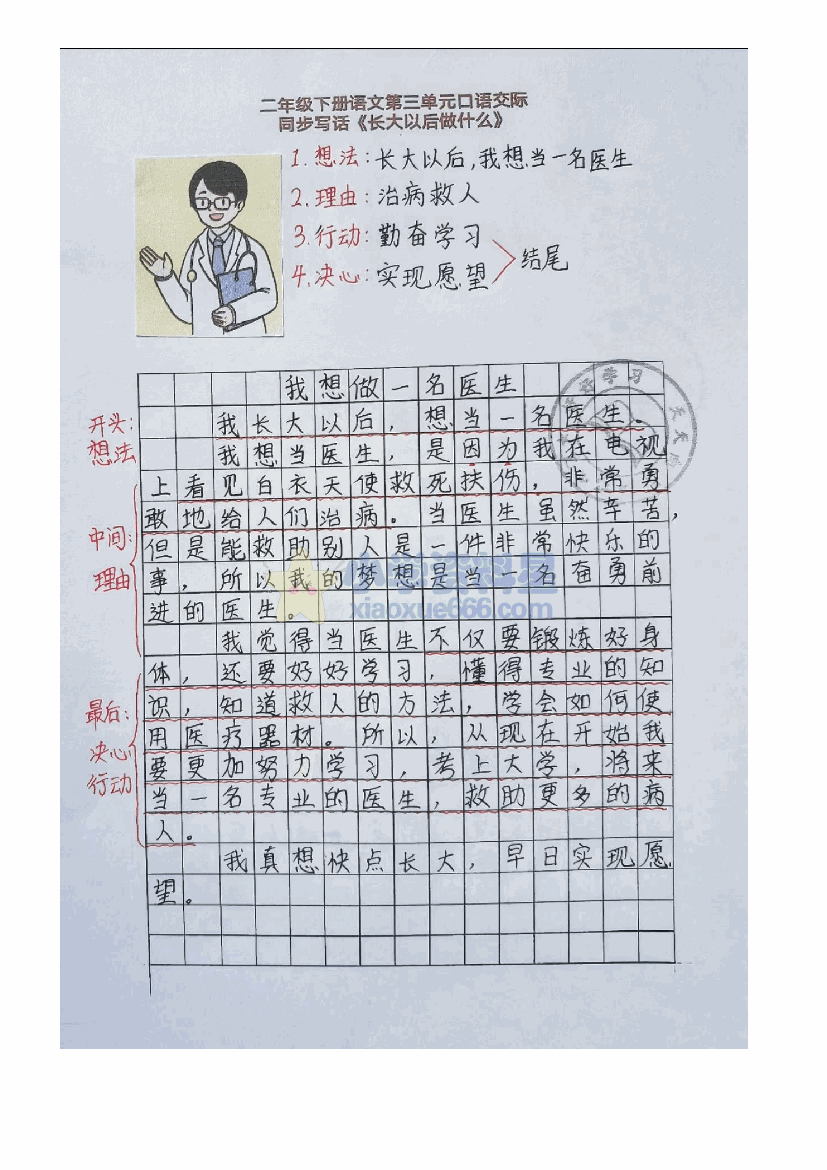 二年级下册语文第三单元口语交际
同步写话《长大以后做什么》
1.想法:长大以后,我想当一名医生
2.理由:治病救人
3.行动:勤奋学习
4.决心:实现愿望
结尾
我想做一名医生
开头:
想法
我长大以后,想当一名医生。
我想当医生,是因为我在电视
上看见白衣天使救死扶伤,非常勇
敢地给人们治病。当医生虽然辛苦,
中间:
理由
但是能救助别人是一件非常快乐的
事,所以我的梦想是当一名奋勇前
进的医生。
小学资料星
xiaoxue666.com
我觉得当医生不仅要锻炼好身
体,还要好好学习,懂得专业的知
识,知道救人的方法,学会如何使
最后:
决心
行动
用医疗器材。所以,从现在开始我
要更加努力学习,考上大学,将来
当一名专业的医生,救助更多的病
人。
我真想快点长大,早日实现愿
望。